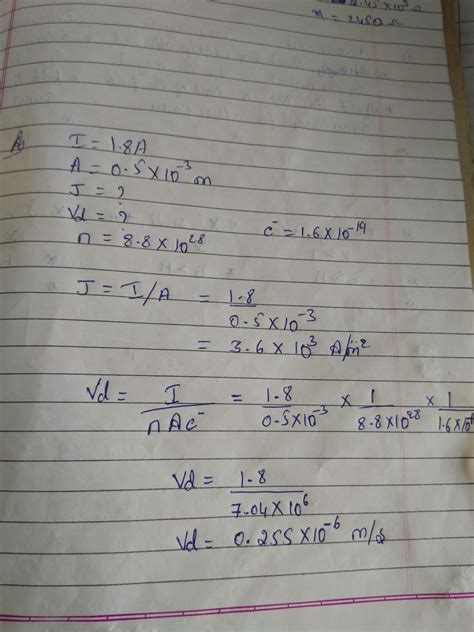 2.45 × 10³ Ω
= 2450 Ω
I = 1.8A
A = 0.5 × 10⁻³ m
J = ?
Vd = ?
n = 8.8 × 10²⁸ c⁻ = 1.6 × 10⁻¹⁹
J = I/A = 1.8 / 0.5 × 10⁻³
= 3.6 × 10³ A/m²
Vd = I / nAc⁻ = 1.8 / 0.5×10⁻³ × 1 / 8.8×10²⁸ × 1 / 1.6×10
Vd = 1.8 / 7.04 × 10⁶
Vd = 0.255 × 10⁻⁶ m/s